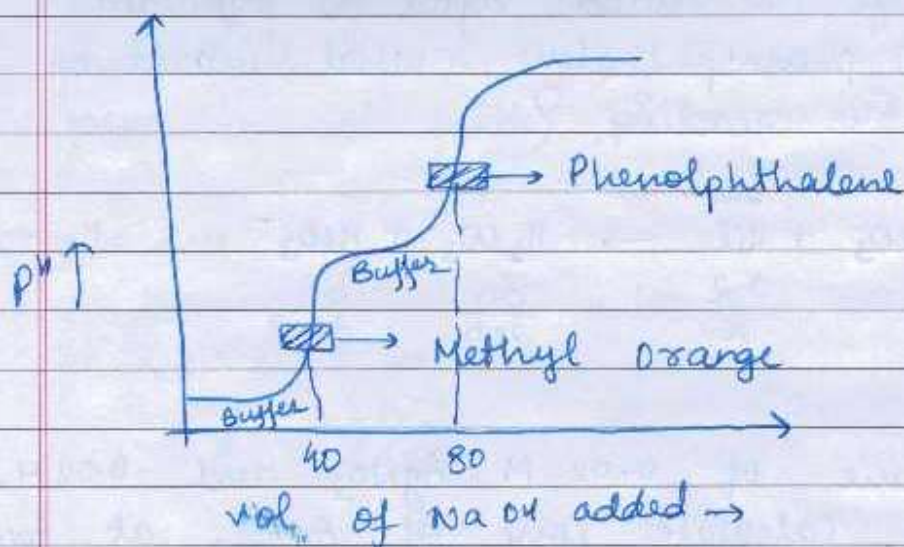 → Phenolphthalene
Buffer
pH ↑
→ Methyl Orange
Buffer
40 80
vol. of NaOH added →